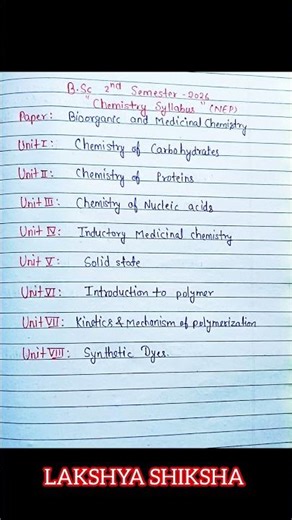 B.Sc 2nd Semester - 2026
"Chemistry Syllabus" (NEP)
Paper: Bioorganic and Medicinal Chemistry
Unit I: Chemistry of Carbohydrates
Unit II: Chemistry of Proteins
Unit III: Chemistry of Nucleic acids
Unit IV: Inductory Medicinal chemistry
Unit V: Solid state
Unit VI: Introduction to polymer
Unit VII: Kinetics & Mechanism of polymerization
Unit VIII: Synthetic Dyes.
LAKSHYA SHIKSHA